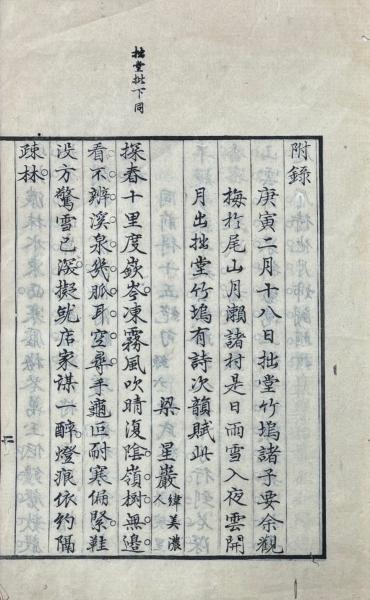 拙堂批下同
附錄
庚寅二月十八日拙堂竹塢諸子要余觀
梅於尾山月瀨諸村是日雨雪入夜雲開
月出拙堂竹塢有詩次韻賦此
梁星巖 緯美濃人
探春十里度嶔岑凍霧風吹晴復陰嶺樹無邊
看不辨溪泉幾脈耳空尋手龜叵耐寒偏緊鞋
没方驚雪已深擬就店家謀一醉燈痕依約隔
疎林